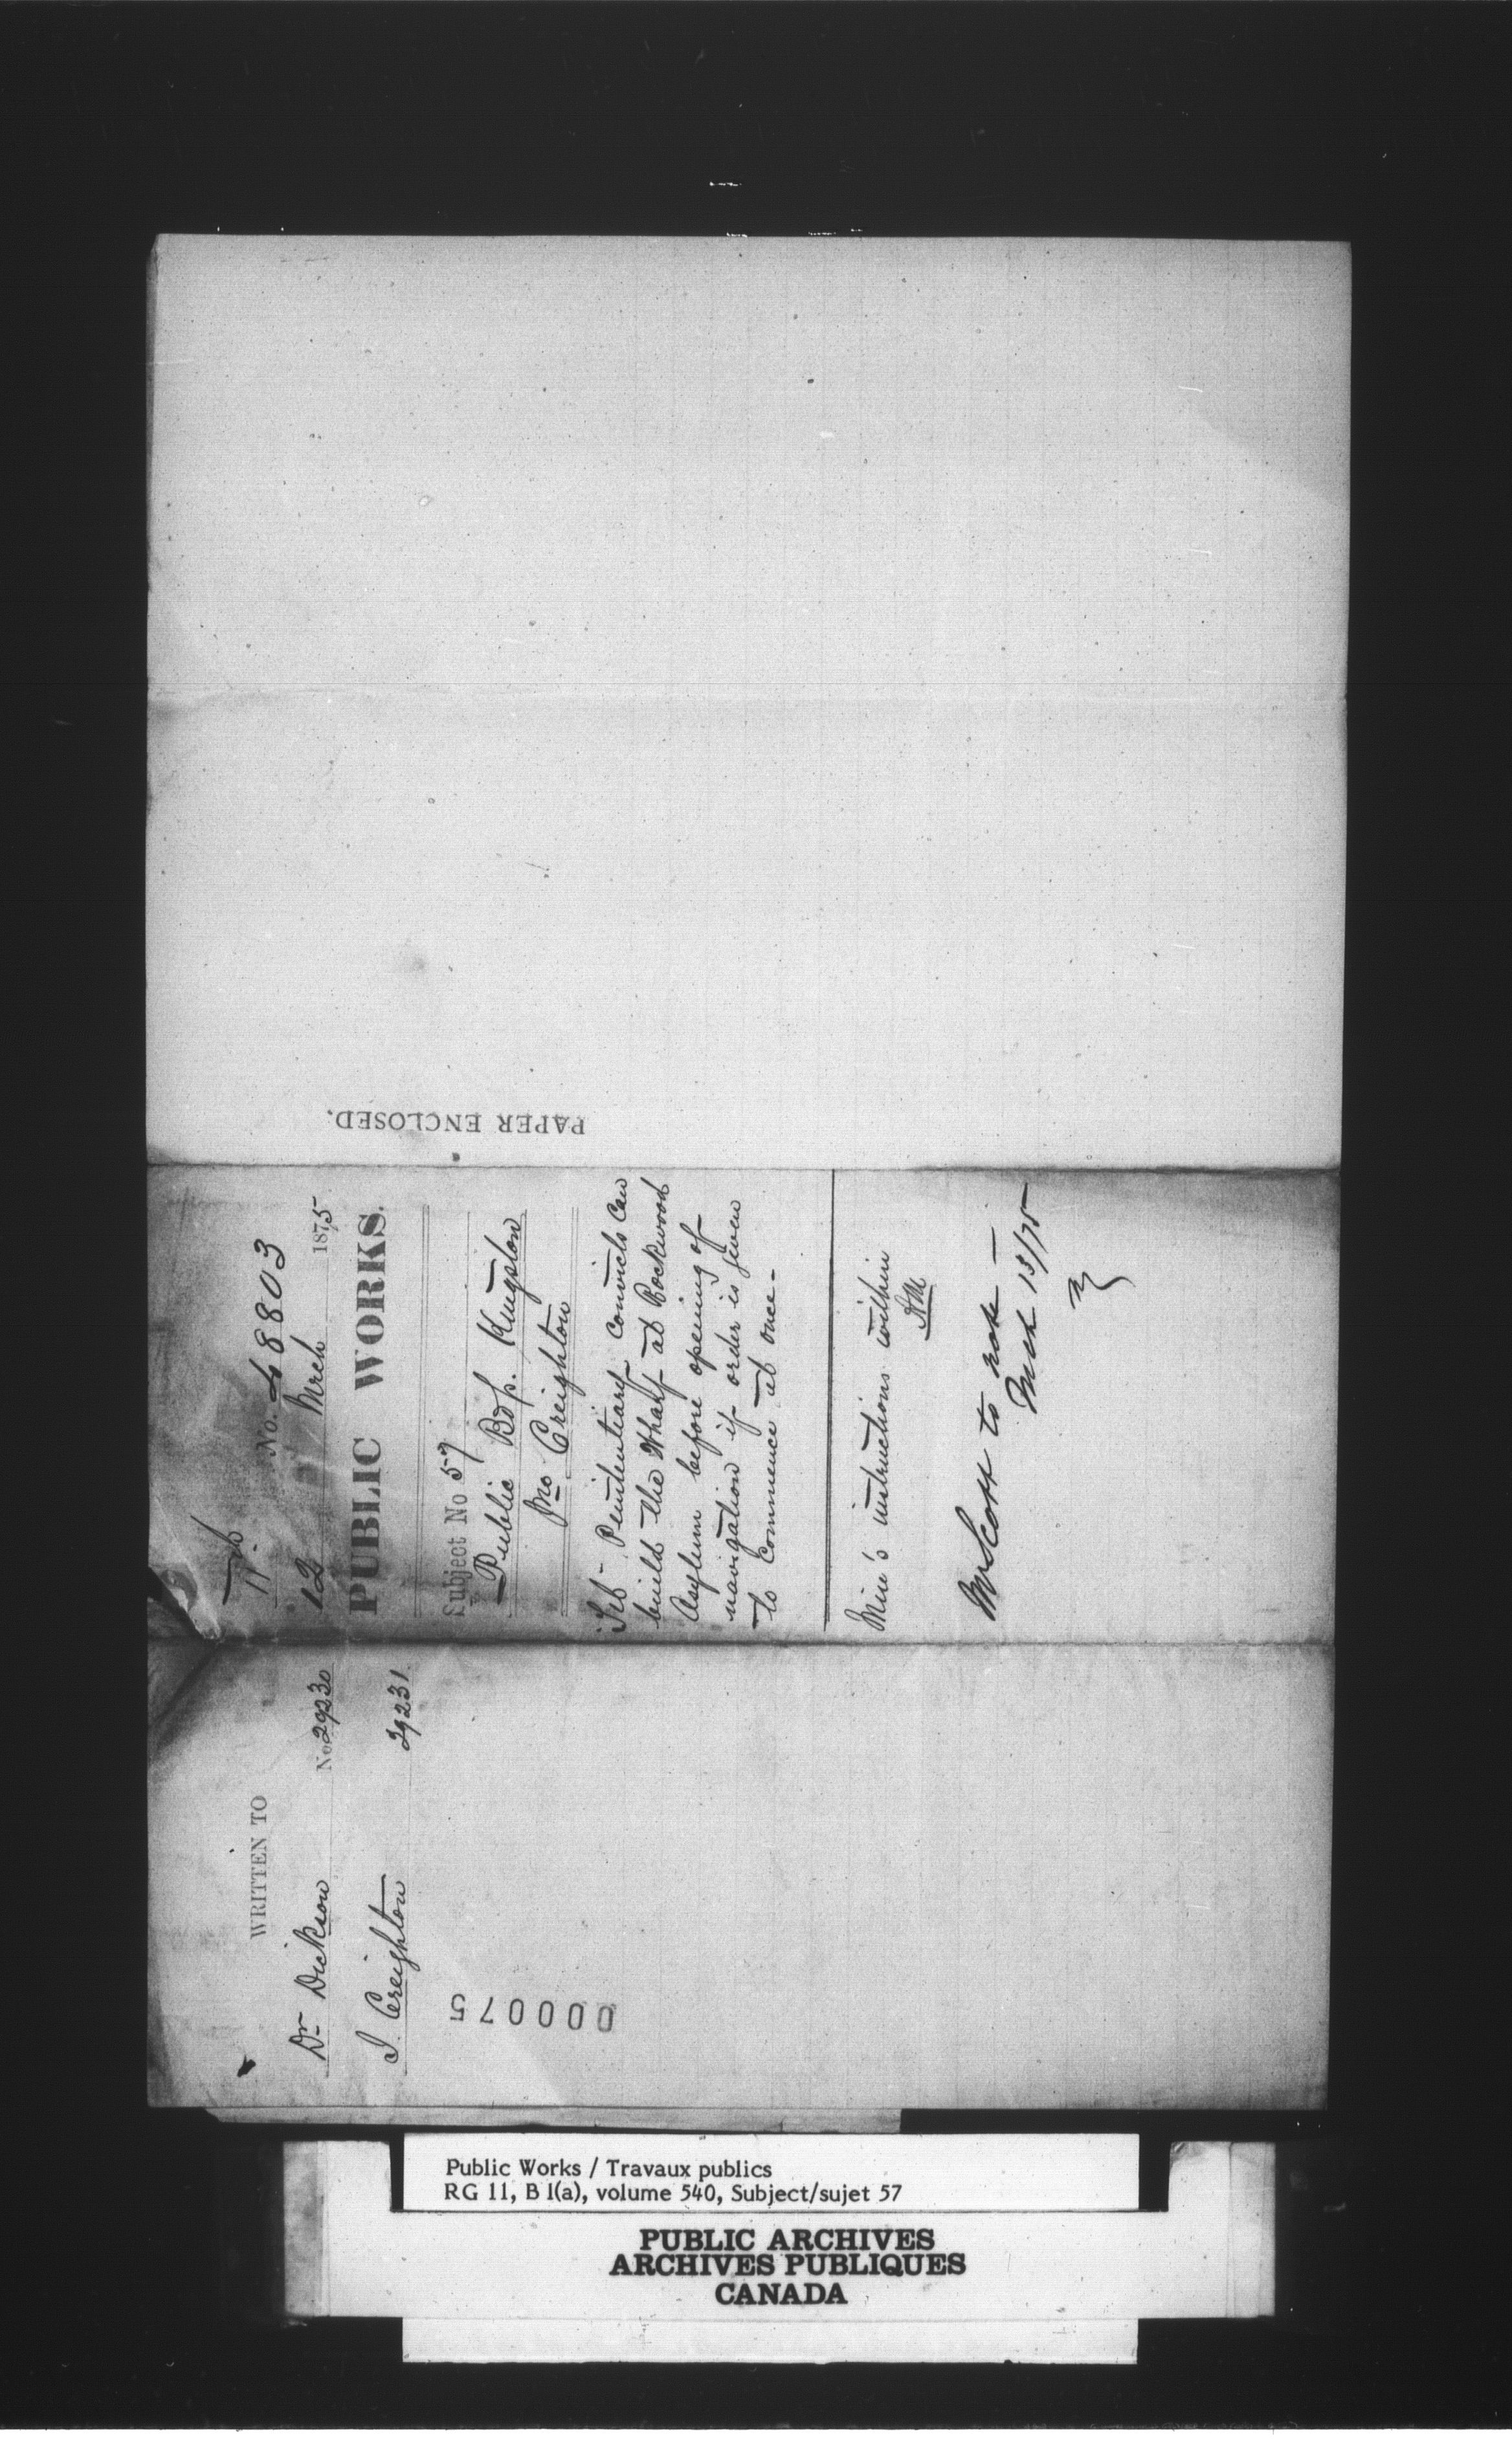 PAPER ENCLOSED.
11th
No. 48803
12 Mrch 1875
PUBLIC WORKS.
Subject No 57
Public Bdgs. Kingston
Mr Creighton
Penitentiary convicts can
build the Wharf at Rockwood
Asylum before opening of
navigation if order is given
to commence at once -
Min's instructions within
Mr Scott to note —
Mch 13/75
WRITTEN TO
Dr Dickson No 29230
J. Creighton 29231
000075
Public Works / Travaux publics
RG 11, B 1(a), volume 540, Subject/sujet 57
PUBLIC ARCHIVES
ARCHIVES PUBLIQUES
CANADA